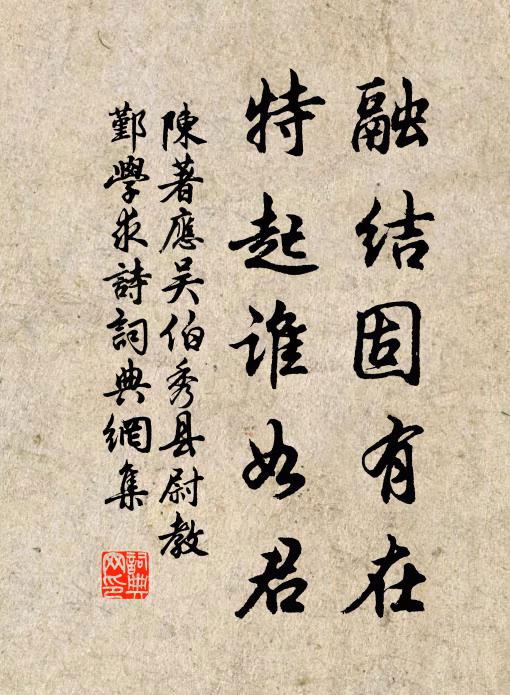 融结固有在
特起谁如君
陳著應吴伯秀县尉教
鄞學求詩詞典網集
詞典网印